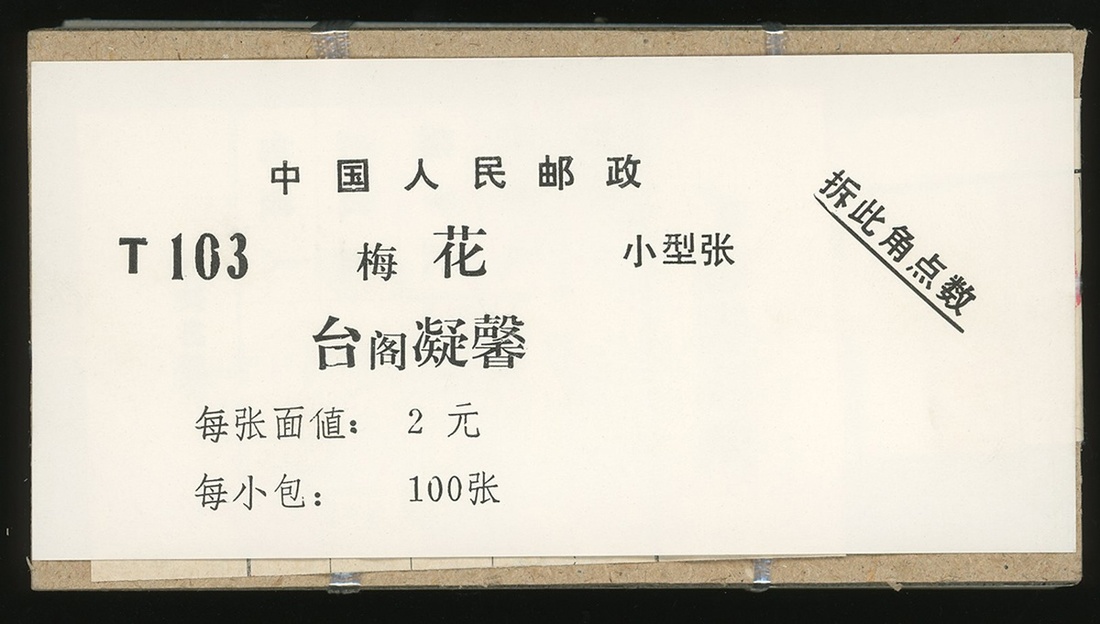 中国人民邮政
T103 梅花 小型张
拆此角点数
台阁凝馨
每张面值： 2 元
每小包： 100张